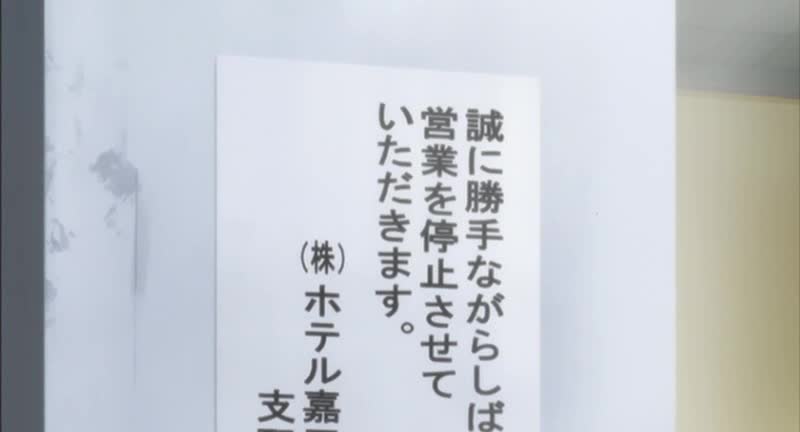 誠に勝手ながらしば
営業を停止させて
いただきます。
(株)ホテル嘉
支